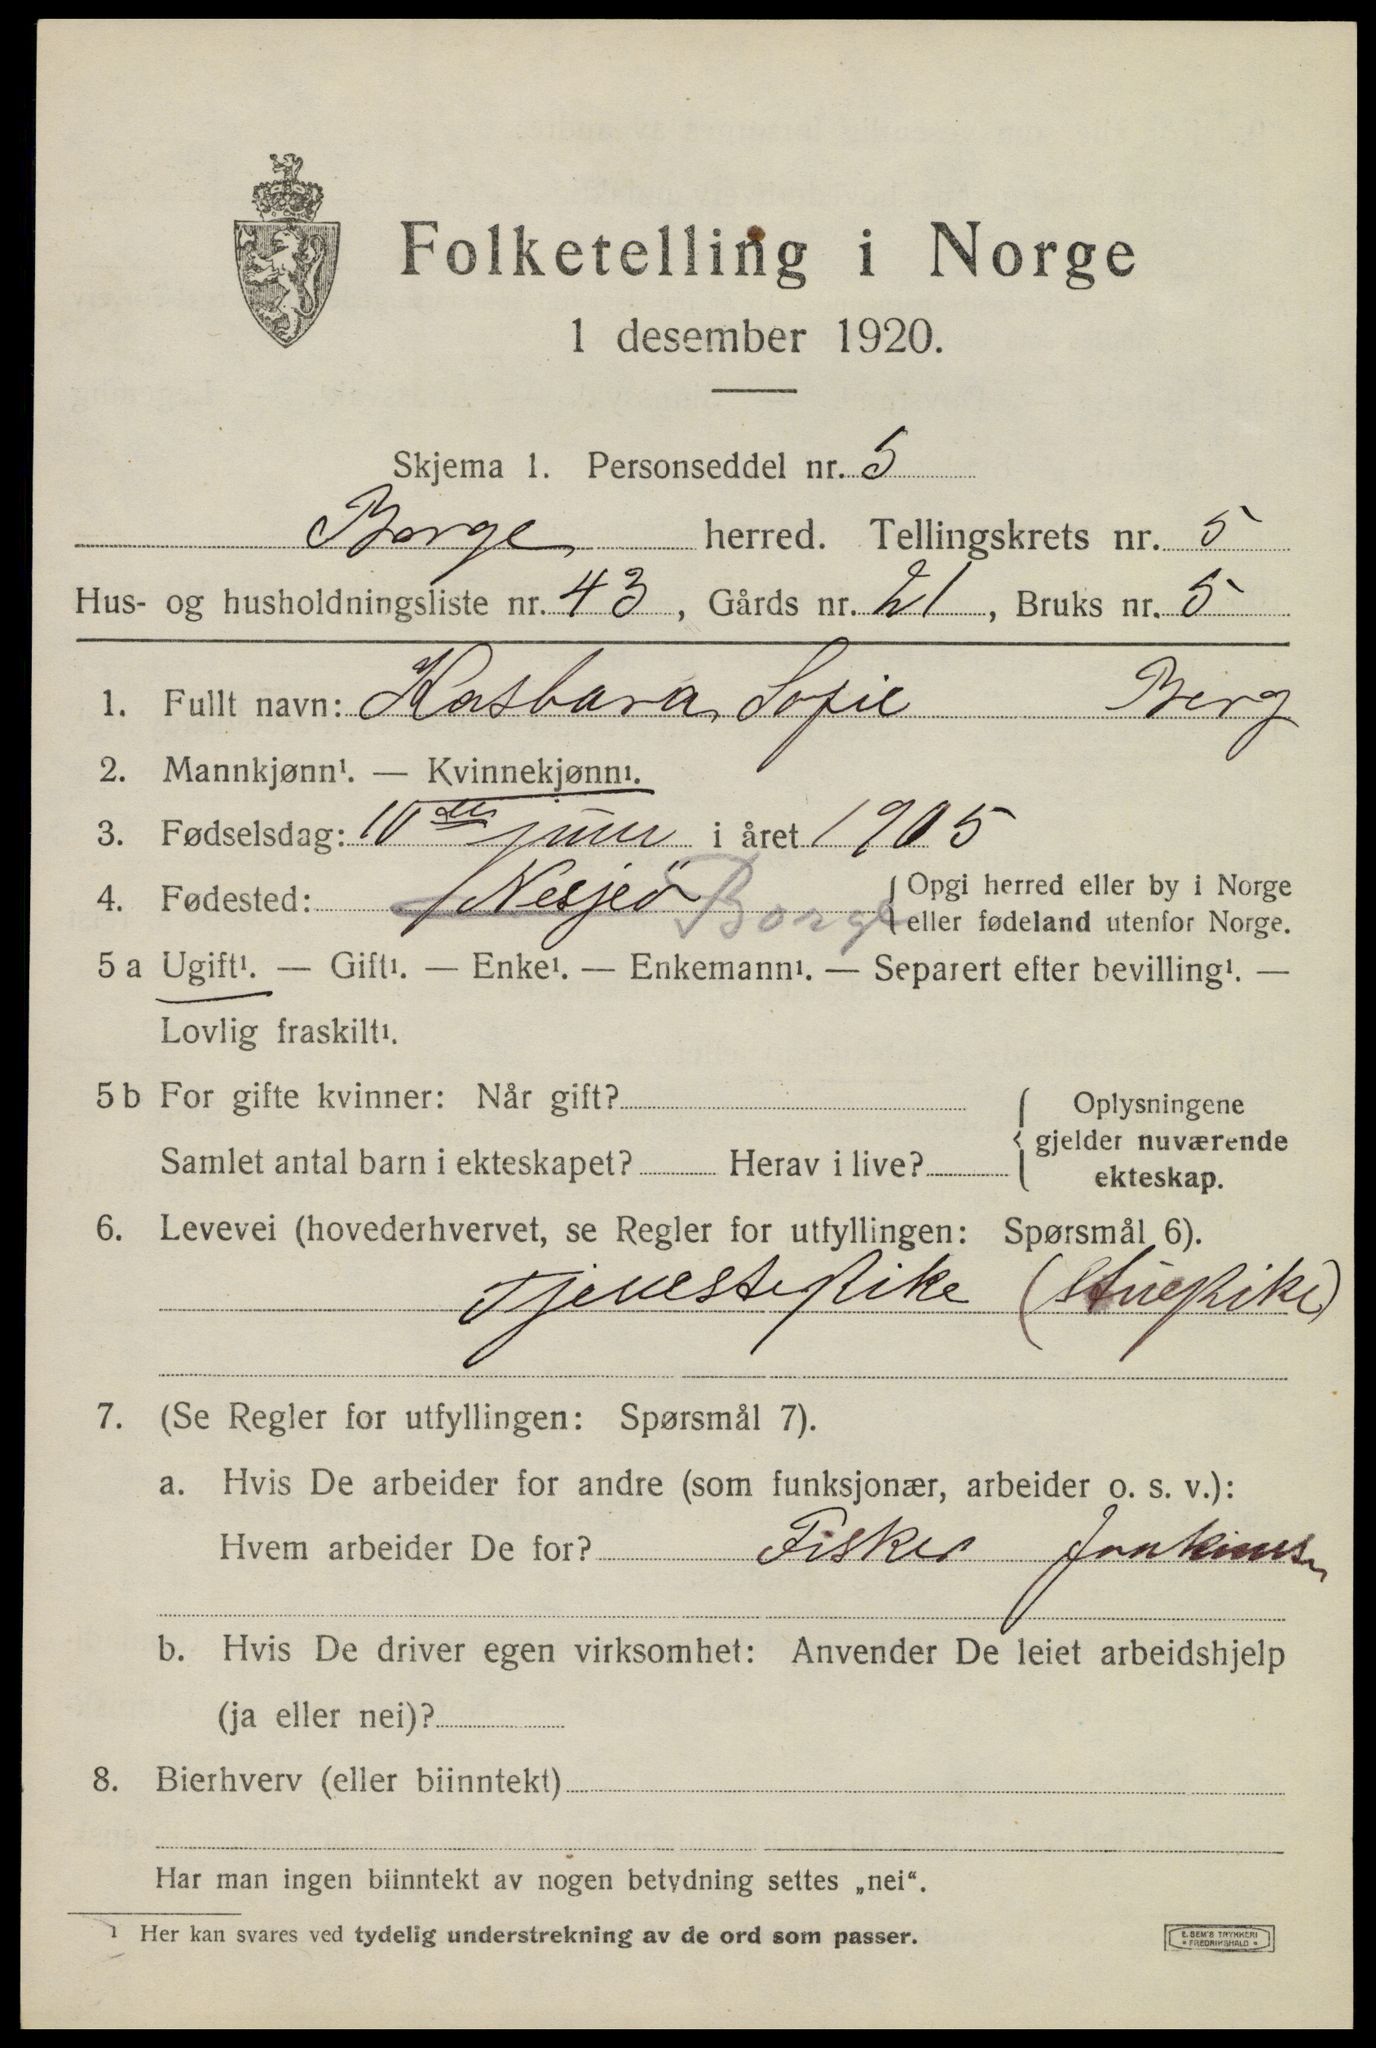 Folketelling i Norge
1 desember 1920.
Skjema 1. Personseddel nr. 5
Borge herred. Tellingskrets nr. 5
Hus- og husholdningsliste nr. 43, Gårds nr. 21, Bruks nr. 5
1. Fullt navn: Kasbara Sofie Berg
2. Mannkjønn¹. — Kvinnekjønn¹.
3. Fødselsdag: 10 de juni i året 1905
4. Fødested: Nesjeö Borge { Opgi herred eller by i Norge
eller fødeland utenfor Norge.
5 a Ugift¹. — Gift¹. — Enke¹. — Enkemann¹. — Separert efter bevilling¹. —
Lovlig fraskilt¹.
5 b For gifte kvinner: Når gift?
Samlet antal barn i ekteskapet? Herav i live?
{ Oplysningene
gjelder nuværende
ekteskap.
6. Levevei (hovederhvervet, se Regler for utfyllingen: Spørsmål 6).
Tjenestepike (Stuepike)
7. (Se Regler for utfyllingen: Spørsmål 7).
a. Hvis De arbeider for andre (som funksjonær, arbeider o. s. v.):
Hvem arbeider De for? Fisker Joakimsen
b. Hvis De driver egen virksomhet: Anvender De leiet arbeidshjelp
(ja eller nei)?
8. Bierhverv (eller biinntekt)
Har man ingen biinntekt av nogen betydning settes „nei“.
¹ Her kan svares ved tydelig understrekning av de ord som passer.
E. SEM'S TRYKKERI
• FREDRIKSHALD •